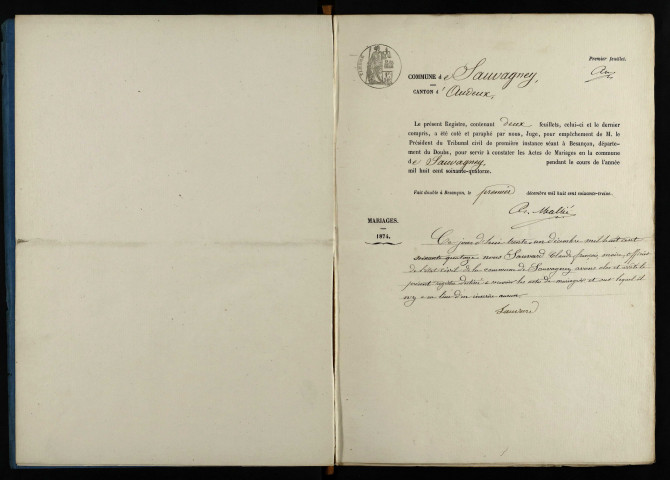 Premier feuillet.
COMMUNE de Sauvagney,
CANTON d'Audeux.
Le présent Registre, contenant deux feuillets, celui-ci et le dernier
compris, a été coté et paraphé par nous, Juge, pour empêchement de M. le
Président du Tribunal civil de première instance séant à Besançon, départe-
ment du Doubs, pour servir à constater les Actes de Mariages en la commune
de Sauvagney, pendant le cours de l'année
mil huit cent soixante-quatorze.
Fait double à Besançon, le premier décembre mil huit cent soixante-treize.
MARIAGES.
1874.
Ce jour d'hui trente un décembre mil huit cent
soixante quatorze nous Sauvard Claude françois, maire, officier
de l'état civil de la commune de Sauvagney avons clos et arrêté le
présent registre destiné à recevoir les actes de mariages et sur lequel il
n'y a eu lieu d'en inscrire aucun
Sauvard